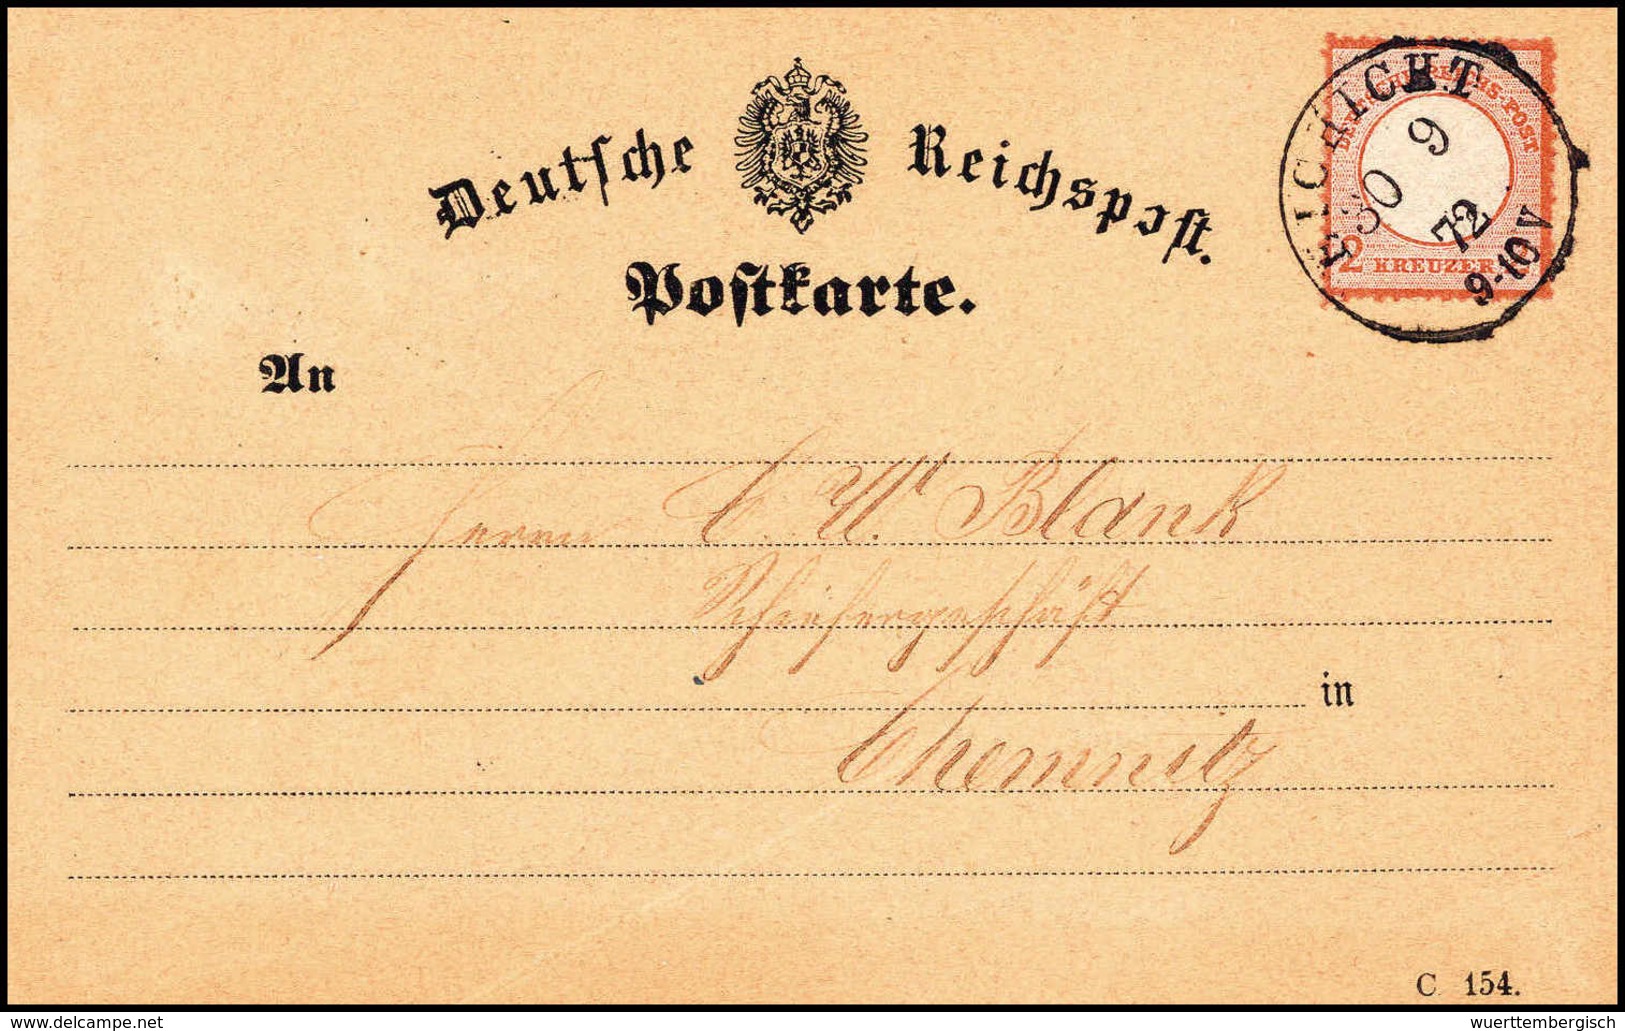 Deutsche Reichspost.
Postkarte.
EICHICHT
30 9
72
9-10 V
DEUTSCHE REICHS-POST
2 KREUZER
An
Herrn C. W. Blank
Schiefergeschäft
in
Chemnitz
C 154.
delcampe.net
wuerttembergisch